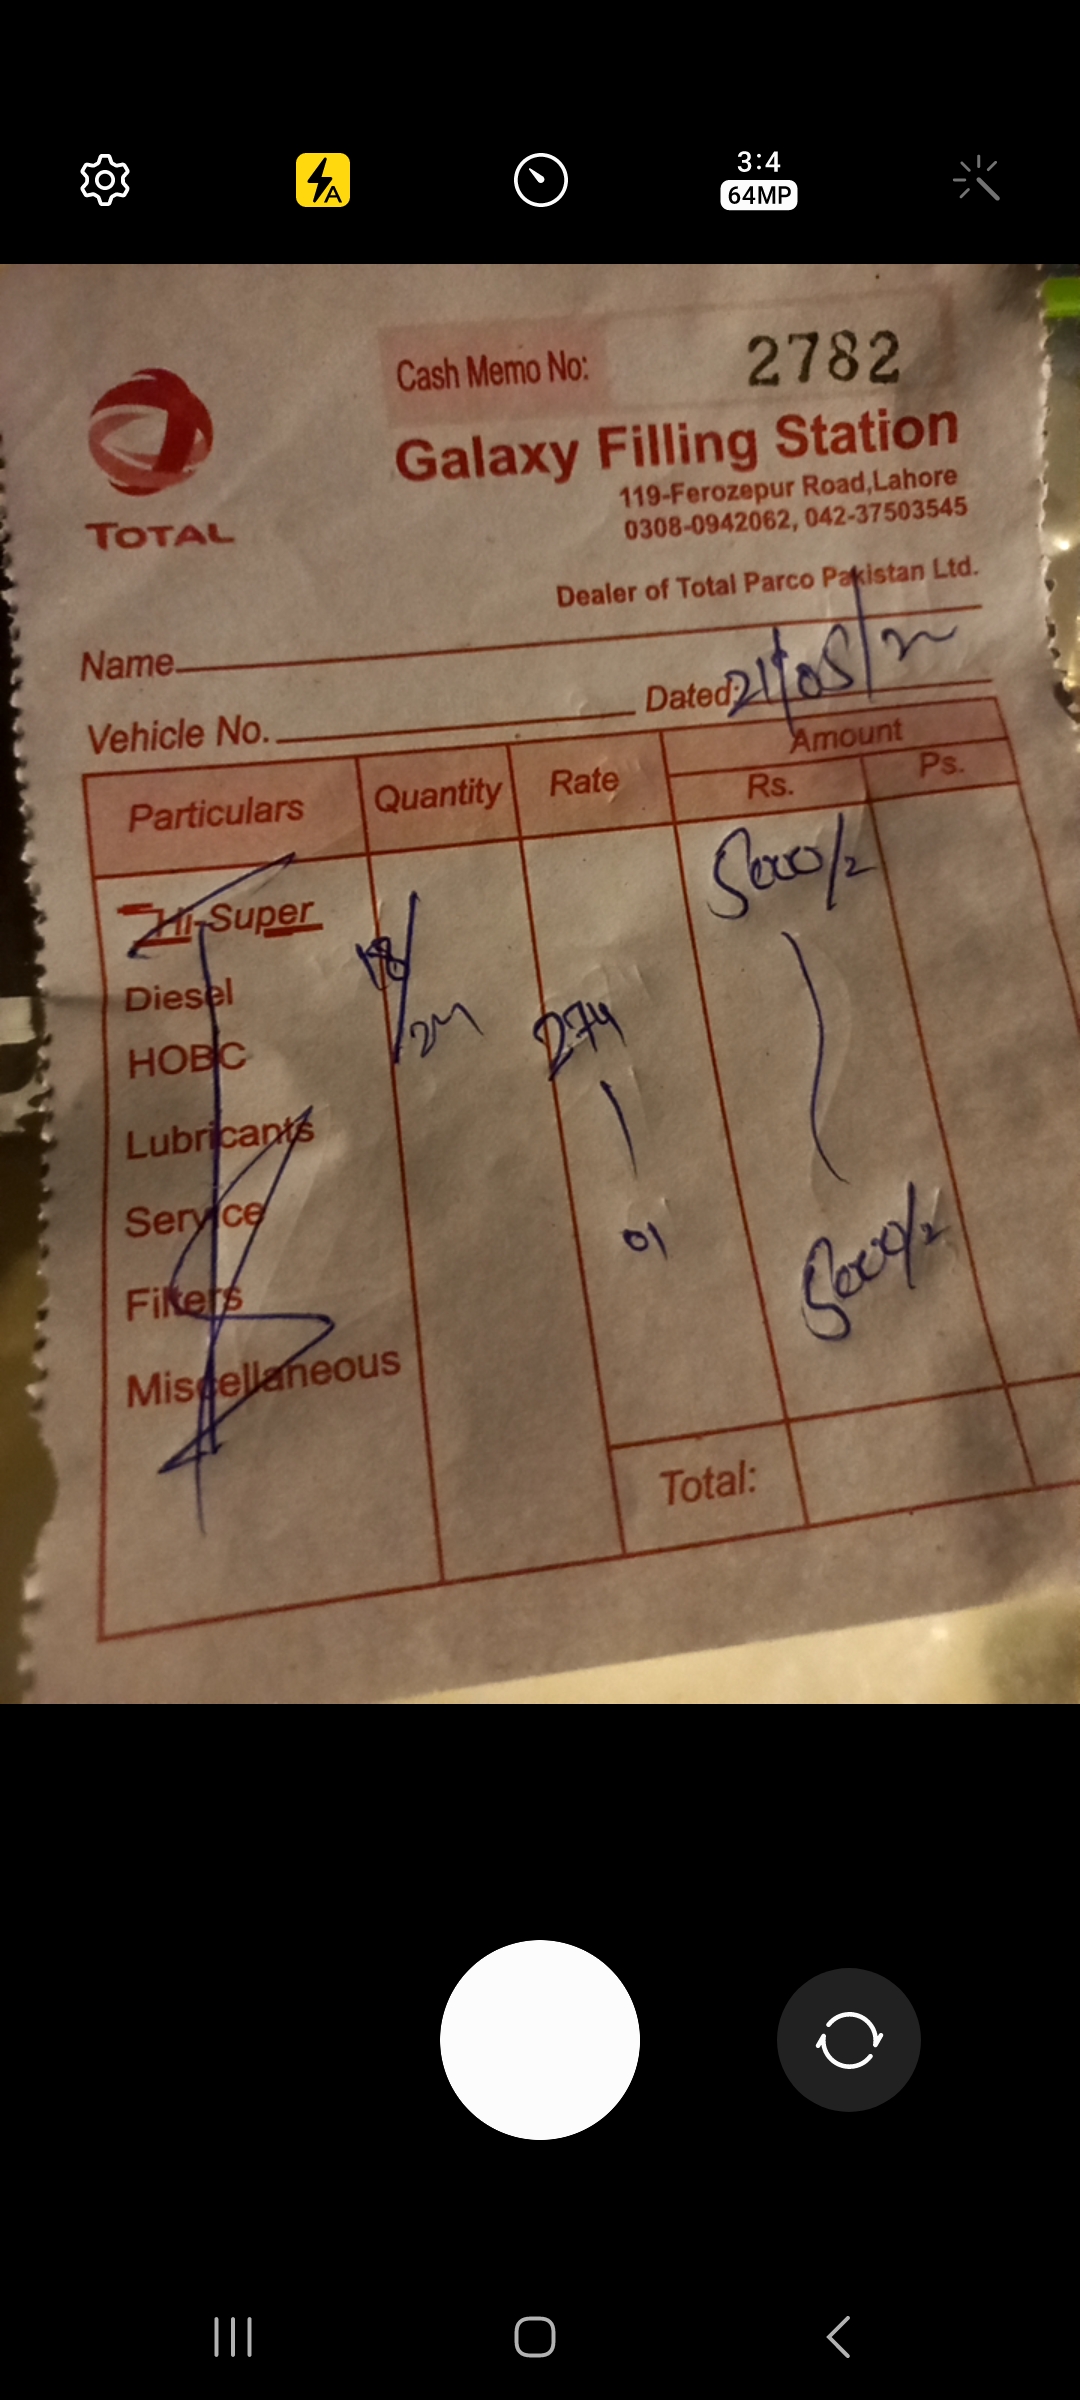 3:4
64MP
A
Cash Memo No: 2782
TOTAL
Galaxy Filling Station
119-Ferozepur Road,Lahore
0308-0942062, 042-37503545
Dealer of Total Parco Pakistan Ltd.
Name
Vehicle No. Dated: 21/05/
Particulars Quantity Rate Amount
Rs. Ps.
Hi-Super 5000/
Diesel 18/
HOBC 274
Lubricants
Service 01
Filters 5000/
Miscellaneous
Total: